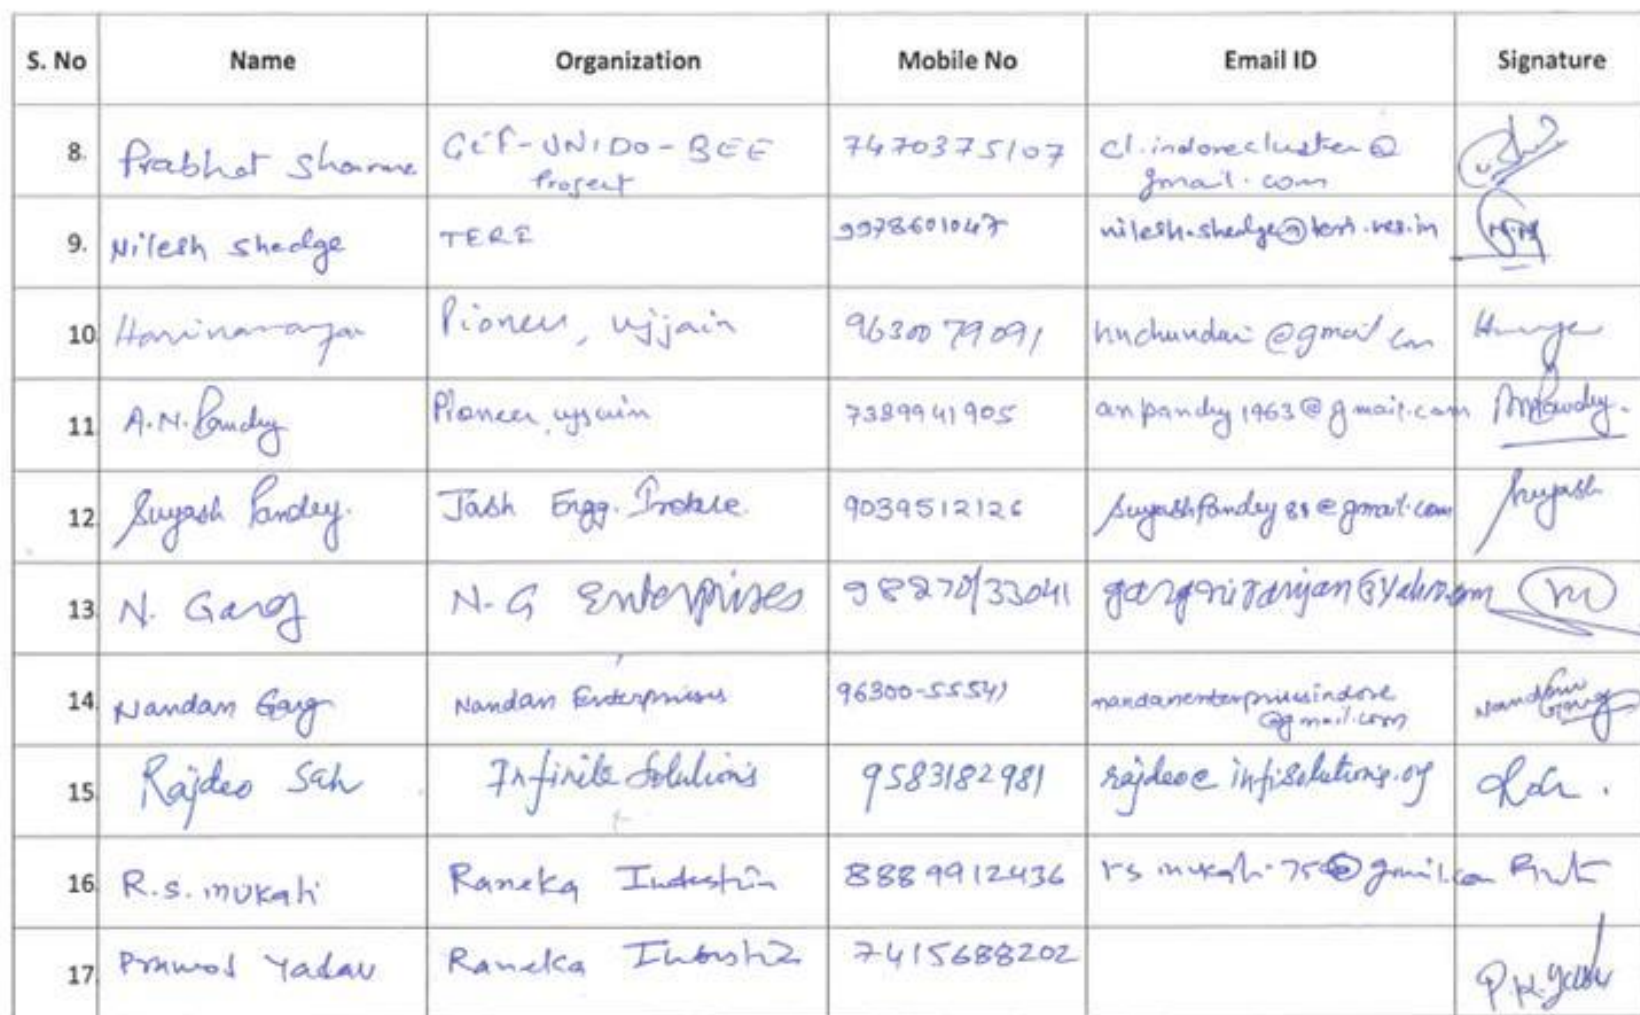 S. No Name Organization Mobile No Email ID Signature
8. Prabhat Sharma GEF-UNIDO-BEE 7470375107 cl.indorecluster@
Project gmail.com
9. Nilesh Shedge TERI 9978601047 nilesh.shedge@teri.res.in
10 Harinarayan Pioneer, Ujjain 9630079091 hnchundai@gmail.com
11 A.N. Pandey Pioneer, ujjain 7389941905 anpandey1963@gmail.com ANPandey.
12 Suyash Pandey. Jash Engg. Indore. 9039512126 suyashpandey88@gmail.com Suyash
13 N. Garg N-G Enterprises 98270/33041 gargniranjan@yahoo.com
14 Nandan Garg Nandan Enterprises 96300-55541 nandanenterprisesindore
@gmail.com Nandan Garg
15 Rajdeo Sah Infinite Solutions 9583182981 rajdeo@infisolutions.org
16 R.S. mukati Raneka Industries 8889912436 rsmukati.75@gmail.com
17 Pramod Yadav Raneka 7415688202 P.K. Yadav